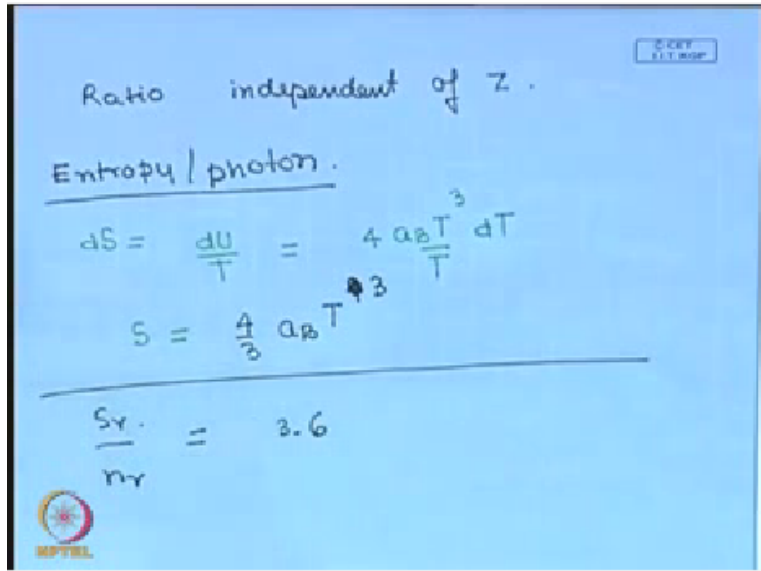 © CET
I.I.T. KGP
Ratio independent of z.
Entropy / photon.
dS = dU/T = 4 a_B T^3/T dT
S = 4/3 a_B T^3
Sr. / nr = 3.6
NPTEL